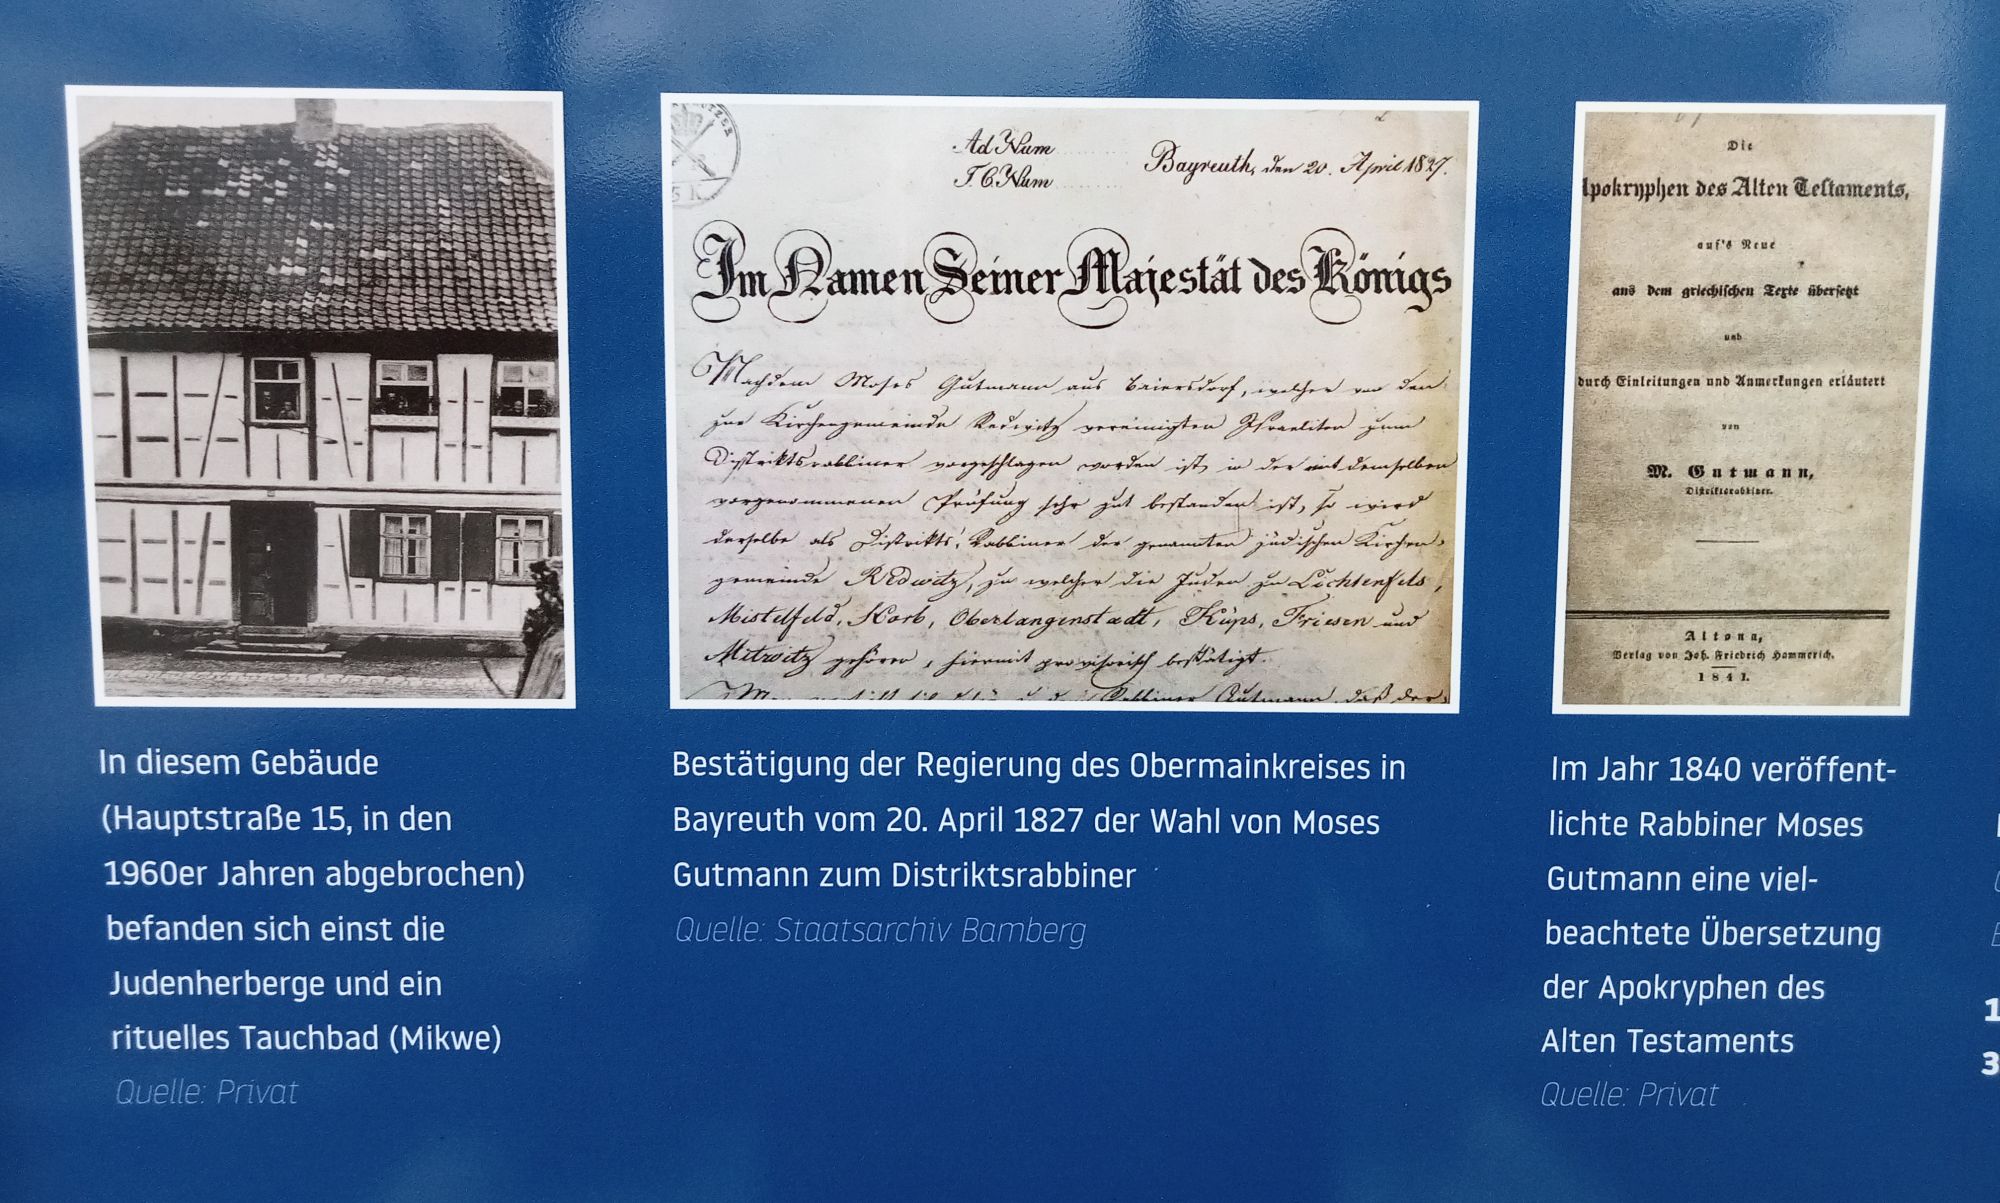 In diesem Gebäude
(Hauptstraße 15, in den
1960er Jahren abgebrochen)
befanden sich einst die
Judenherberge und ein
rituelles Tauchbad (Mikwe)
Quelle: Privat
5 K
Ad Num
T. C. Num
Bayreuth, den 20. April 1827.
Im Namen Seiner Majestät des Königs
Nachdem Moses Gutmann aus Baiersdorf, welcher von den
zur Kirchengemeinde Redwitz vereinigten Israeliten zum
Distriktsrabbiner vorgeschlagen worden ist, in der mit demselben
vorgenommenen Prüfung sehr gut bestanden ist, so wird
derselbe als Distrikts-Rabbiner der genannten jüdischen Kirchen-
gemeinde Redwitz, zu welcher die Juden zu Lichtenfels,
Mistelfeld, Horb, Oberlangenstadt, Küps, Friesen und
Mitwitz gehören, hiermit provisorisch bestätigt.
Rabbiner Gutmann, daß der
Bestätigung der Regierung des Obermainkreises in
Bayreuth vom 20. April 1827 der Wahl von Moses
Gutmann zum Distriktsrabbiner
Quelle: Staatsarchiv Bamberg
Die
Apokryphen des Alten Testaments,
auf's Neue
aus dem griechischen Texte übersetzt
und
durch Einleitungen und Anmerkungen erläutert
von
M. Gutmann,
Distriktsrabbiner.
Altona,
Verlag von Joh. Friedrich Hammerich.
1841.
Im Jahr 1840 veröffent-
lichte Rabbiner Moses
Gutmann eine viel-
beachtete Übersetzung
der Apokryphen des
Alten Testaments
Quelle: Privat
1
3